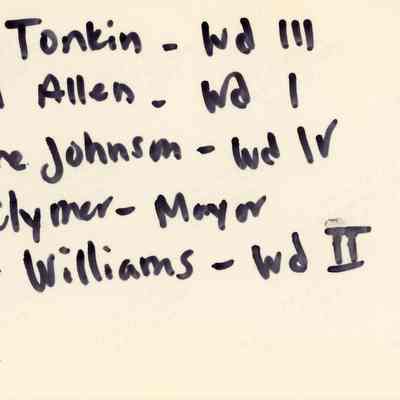 Tonkin - Wd III
Allen - Wd I
Johnson - Wd IV
Clymer - Mayor
Williams - Wd II